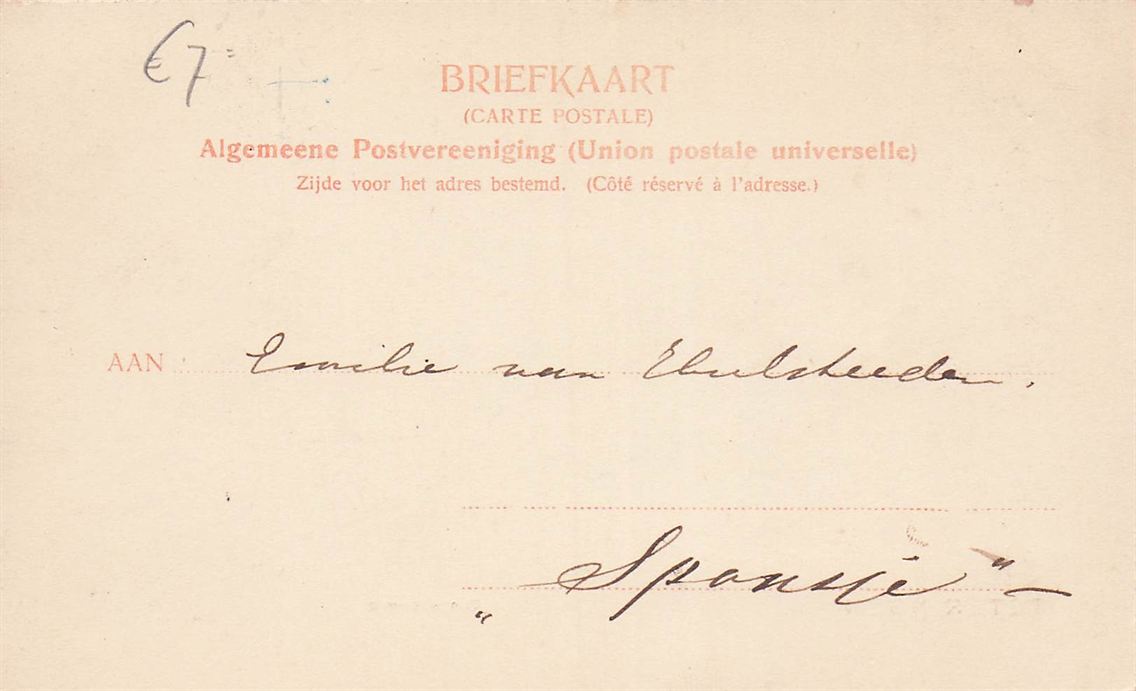 €7=
BRIEFKAART
(CARTE POSTALE)
Algemeene Postvereeniging (Union postale universelle)
Zijde voor het adres bestemd. (Côté réservé à l'adresse.)
AAN Emilie van
„ Spontjé "